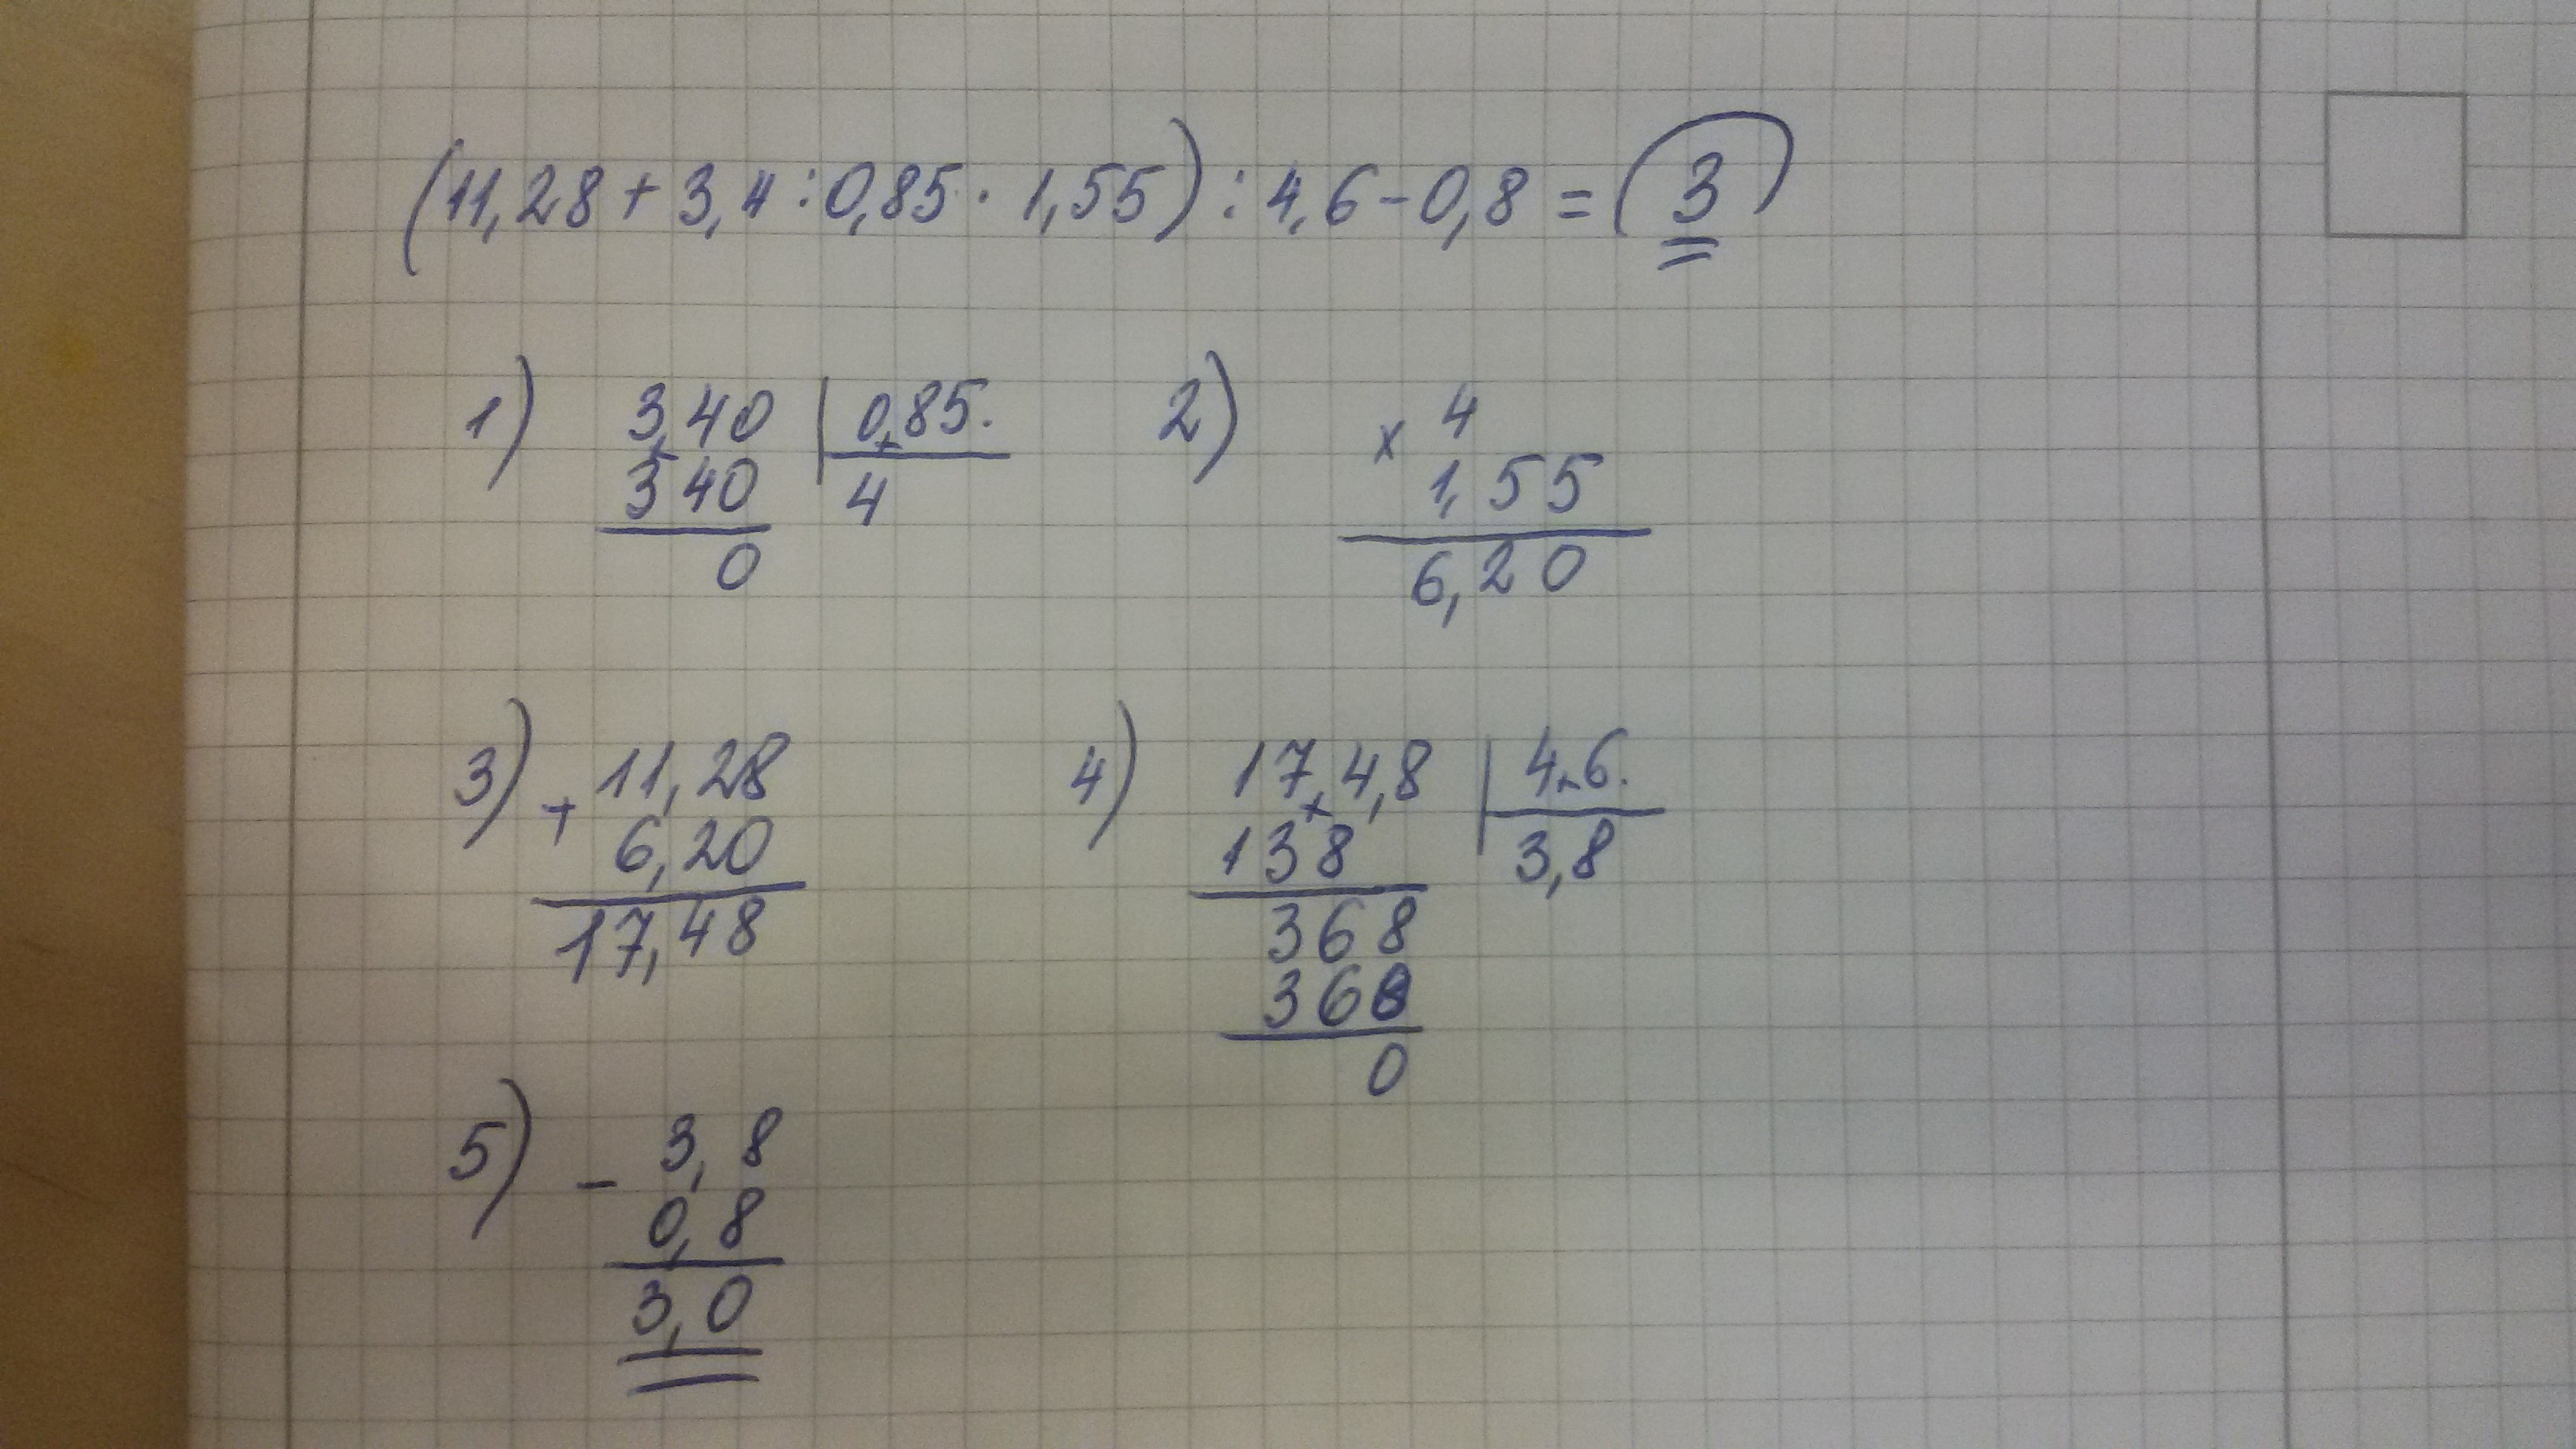 (11,28 + 3,4 : 0,85 · 1,55) : 4,6 - 0,8 = (3)
1) 3,40 | 0,85.
340 4
0
2) x 4
1,55
6,20
3) + 11,28
6,20
17,48
4) 17,4,8 | 4,6.
138 3,8
368
368
0
5) - 3,8
0,8
3,0